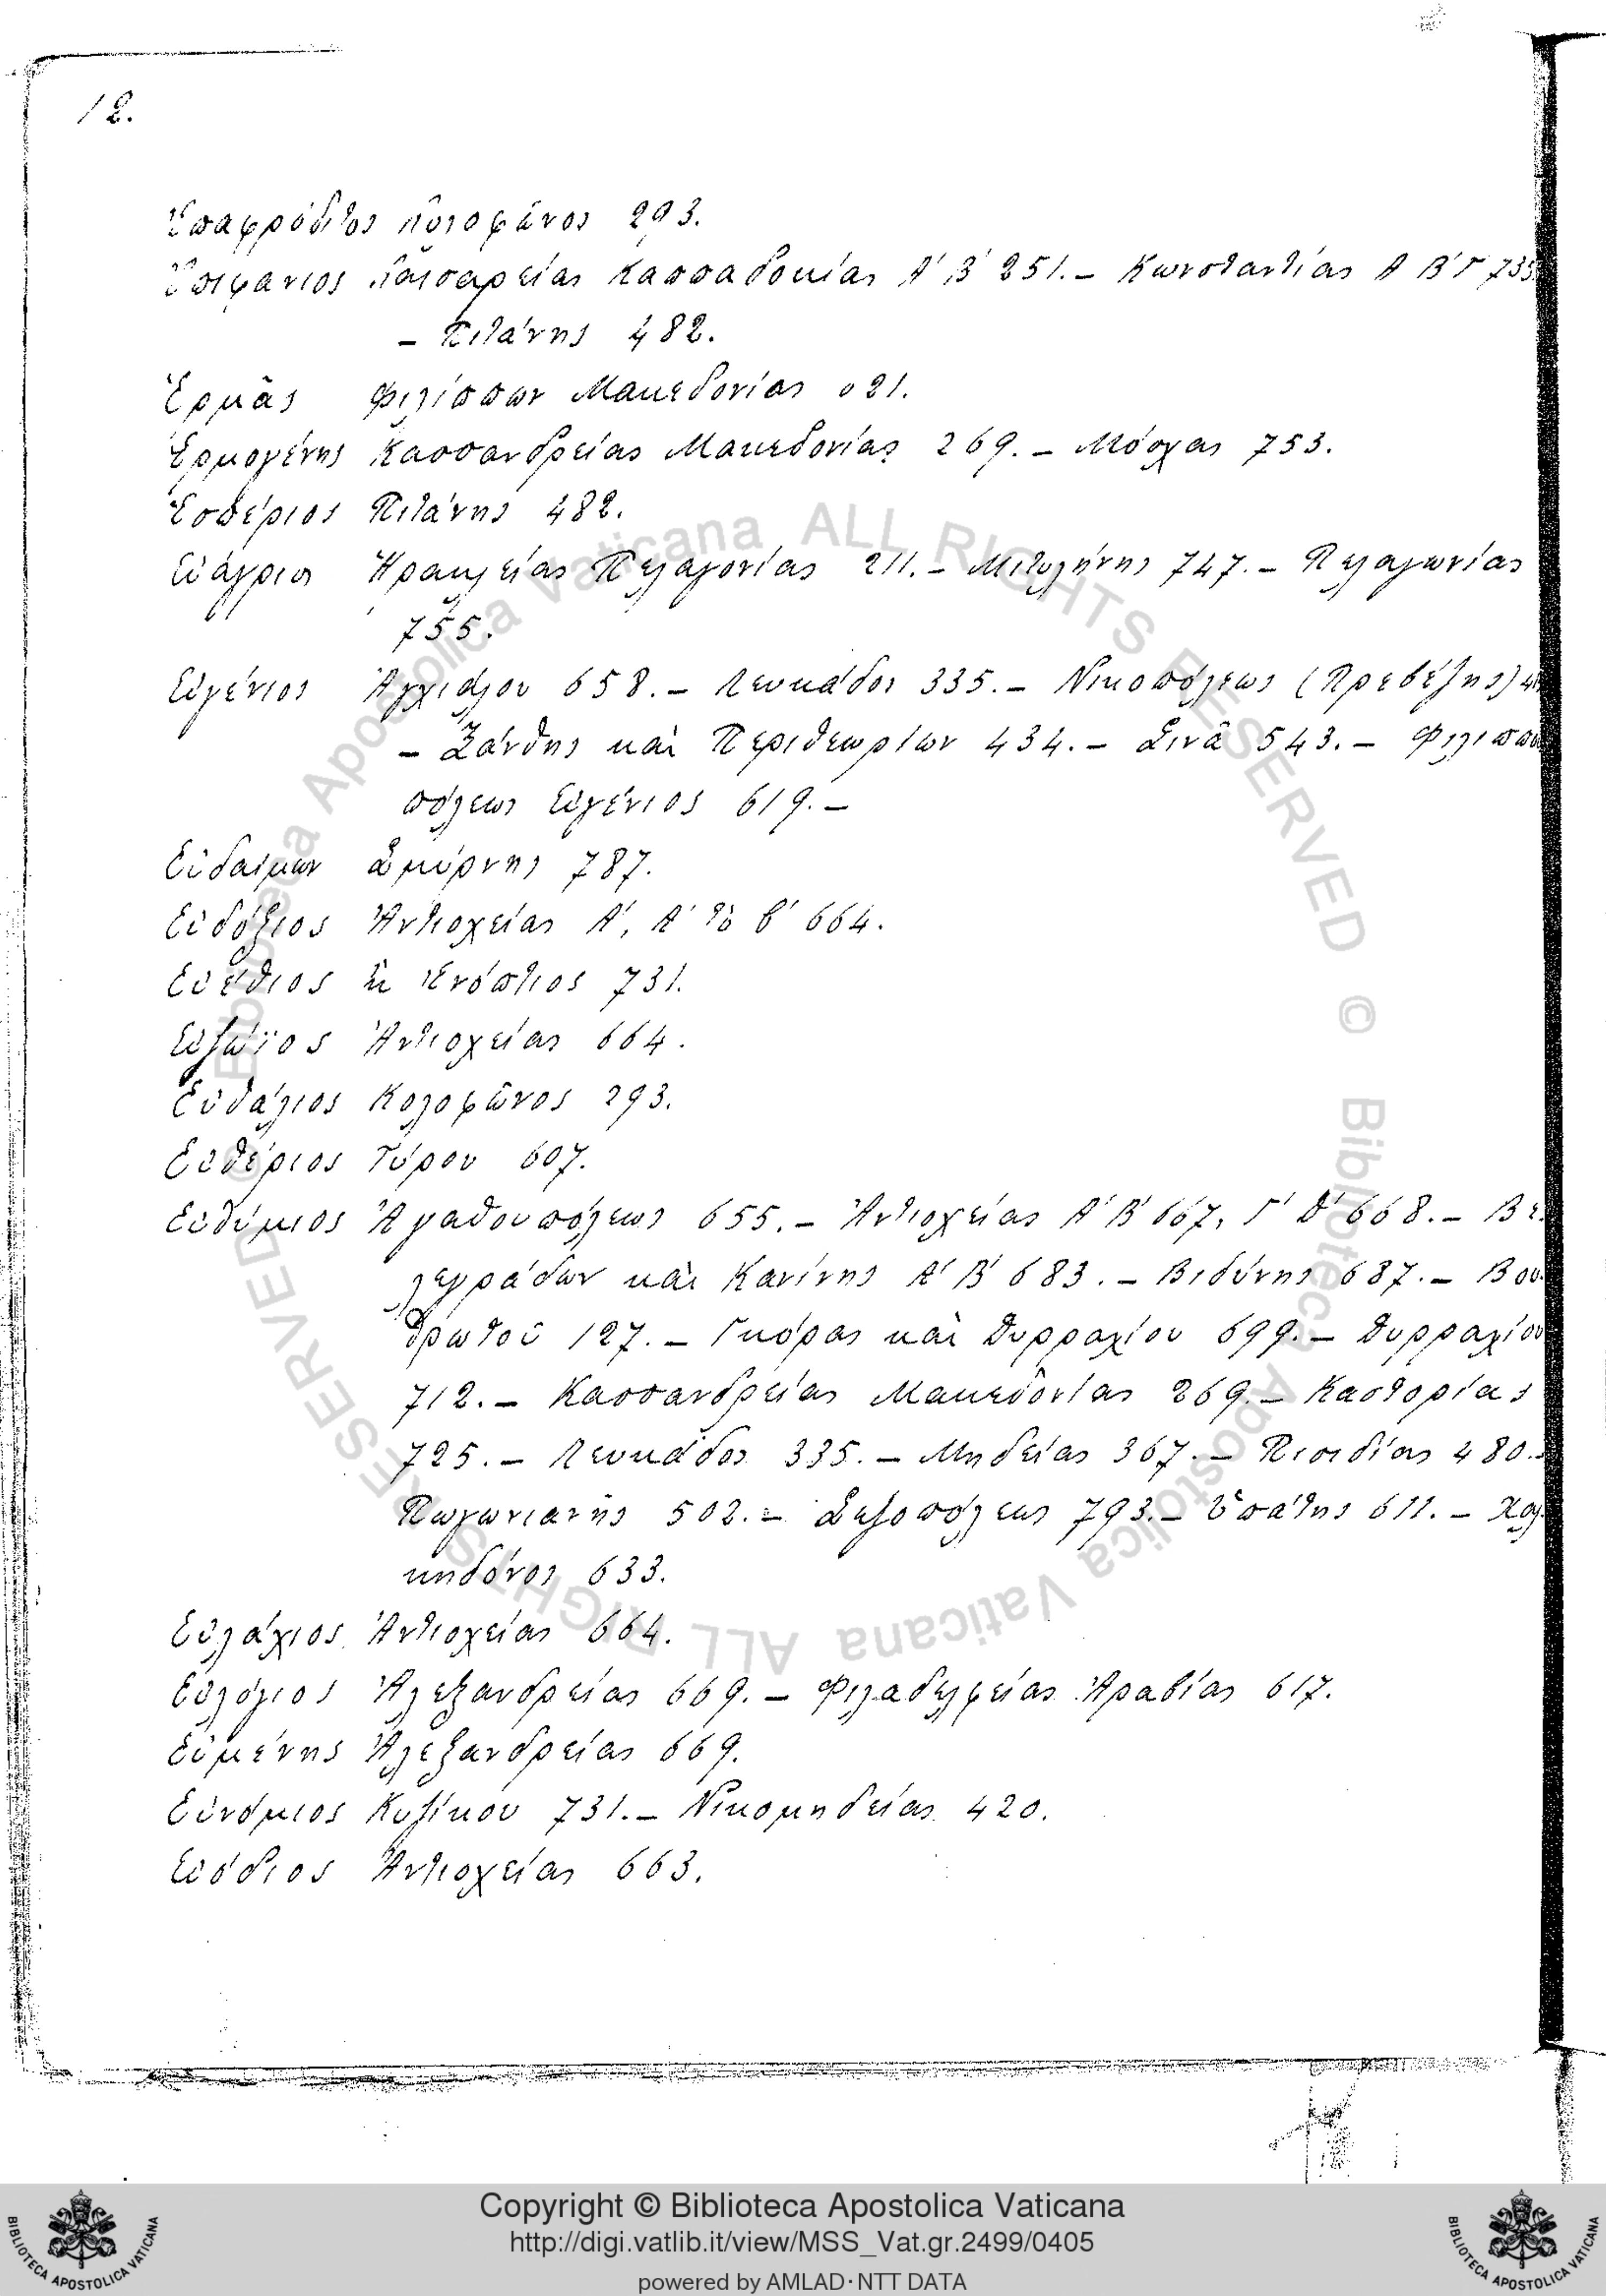 12.
Ἐπαφρόδιτος Κολοφῶνος 293.
Ἐπιφάνιος Καισαρείας Καππαδοκίας Α' Β' 251. – Κωνσταντίας Α Β' Γ 735
– Πιτάνης 482.
Ἑρμᾶς Φιλίππων Μακεδονίας 621.
Ἑρμογένης Κασσανδρείας Μακεδονίας 269. – Μόσχας 753.
Ἑσπέριος Πιτάνης 482.
Εὐάγριος Ἡρακλείας Πελαγονίας 211. – Μιτυλήνης 747. – Πελαγωνίας
755.
Εὐγένιος Ἀγχιάλου 658. – Λευκάδος 335. – Νικοπόλεως (Πρεβέζης)
– Ξάνθης καὶ Περιθεωρίων 434. – Σινᾶ 543. – Φιλιππου
πόλεως Εὐγένιος 619. –
Εὐδαίμων Σμύρνης 787.
Εὐδόξιος Ἀντιοχείας Α', Α' τὸ β' 664.
Εὐέθιος ἢ Ἐνόπτιος 731.
Εὐζώϊος Ἀντιοχείας 664.
Εὐθάλιος Κολοφῶνος 293.
Εὐθέριος Τύρου 607.
Εὐθύμιος Ἀγαθουπόλεως 655. – Ἀντιοχείας Α' Β' 667, Γ' Δ' 668. – Βε
λεγράδων καὶ Κανίνης Α' Β' 683. – Βιδύνης 687. – Βου
θρωτοῦ 127. – Γκόρας καὶ Δυρραχίου 699. – Δυρραχίου
712. – Κασσανδρείας Μακεδονίας 269. – Καστορίας
725. – Λευκάδος 335. – Μηδείας 367. – Πισιδίας 480.
Πωγωνιανῆς 502. – Σωζοπόλεως 793. – Ὑπάτης 611. – Χαλ
κηδόνος 633.
Εὐλάχιος Ἀντιοχείας 664.
Εὐλόγιος Ἀλεξανδρείας 669. – Φιλαδελφείας Ἀραβίας 617.
Εὐμένης Ἀλεξανδρείας 669.
Εὐνόμιος Κυζίκου 731. – Νικομηδείας 420.
Εὐόδιος Ἀντιοχείας 663.
Biblioteca Apostolica Vaticana ALL RIGHTS RESERVED © Biblioteca Apostolica Vaticana ALL RIGHTS RESERVED ©
Copyright © Biblioteca Apostolica Vaticana
http://digi.vatlib.it/view/MSS_Vat.gr.2499/0405
powered by AMLAD·NTT DATA
BIBLIOTECA APOSTOLICA VATICANA
BIBLIOTECA APOSTOLICA VATICANA